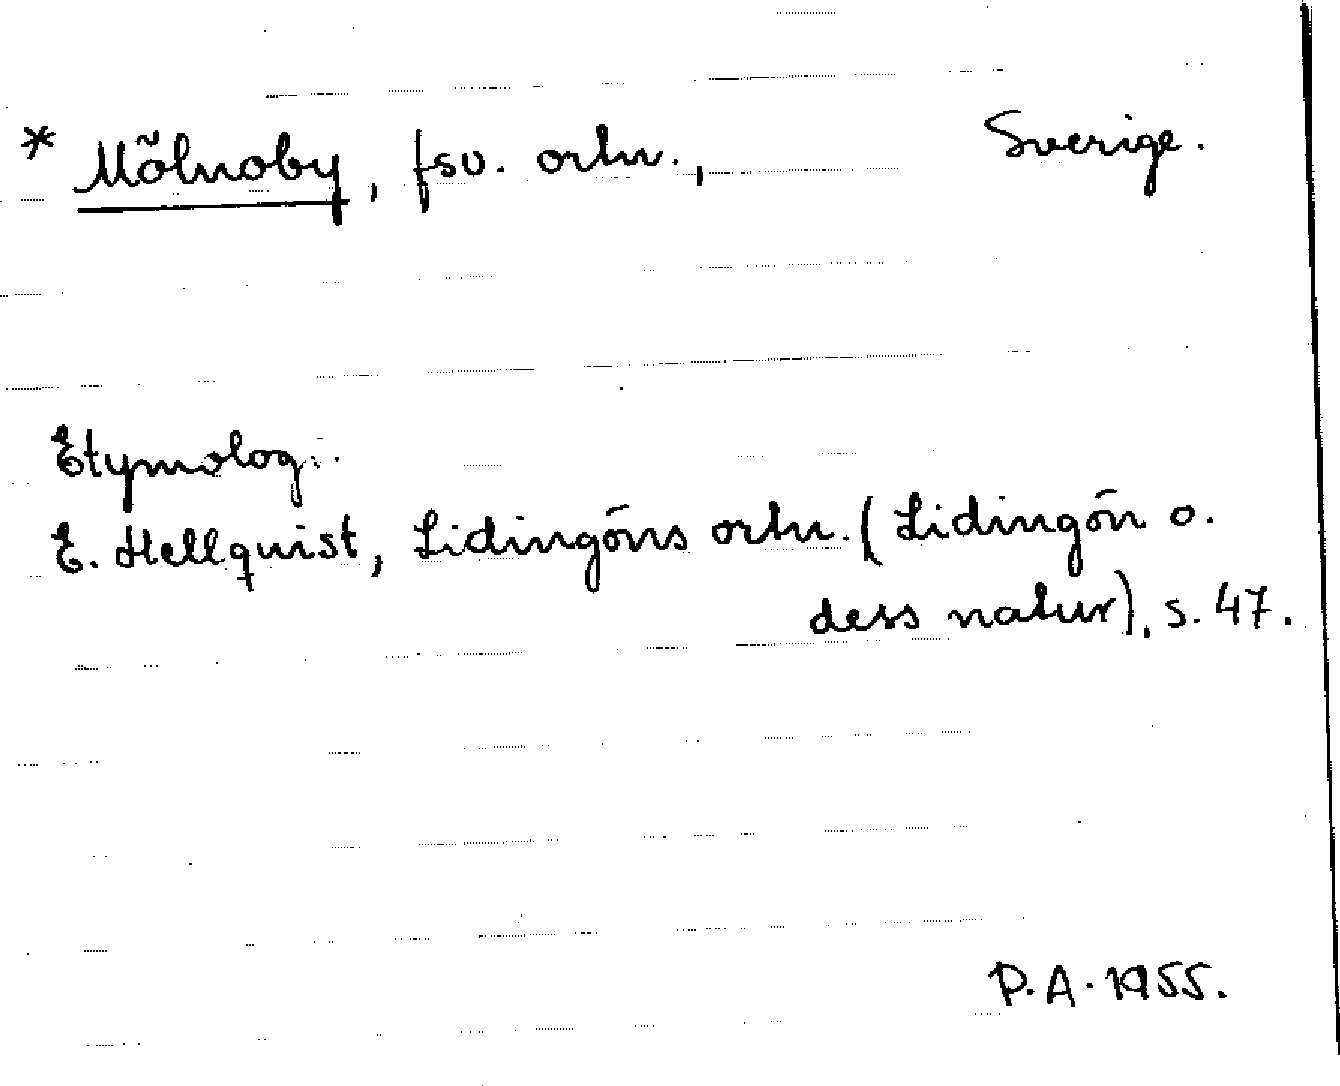 * Mölnoby, fsv. ortn., Sverige.
Etymologi.
E. Hellquist, Lidingöns ortn. (Lidingön o.
dess natur), s. 47.
P.A. 1955.